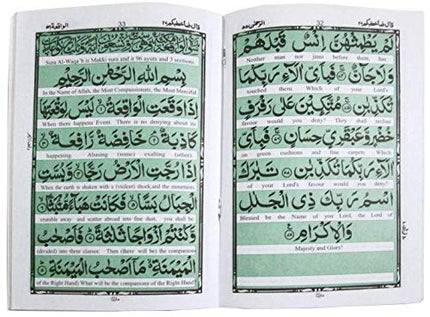 قال فما خطبكم ٢٧ 32 الرحمن ٥٥
لَمْ يَطْمِثْهُنَّ اِنْسٌ قَبْلَهُمْ
Neither man nor jinns before them, has
وَلَا جَآنٌّ فَبِاَيِّ اٰلَآءِ رَبِّكُمَا
touched them. Which of your Lord's
تُكَذِّبٰنِ مُتَّكِـِٕيْنَ عَلٰى رَفْرَفٍ
favour would you deny? They shall recline
خُضْرٍ وَّعَبْقَرِيٍّ حِسَانٍ فَبِاَيِّ
on green cushions and fine carpets. Which
اٰلَآءِ رَبِّكُمَا تُكَذِّبٰنِ تَبٰرَكَ
of your Lord's favour would you deny?
اسْمُ رَبِّكَ ذِى الْجَلٰلِ
Blessed be the Name of you Lord, the Lord of
وَالْاِكْرَامِ
Majesty and Glory!
قال فما خطبكم ٢٧ 33 الواقعة ٥٦
Sura Al-Waqa'h is Makki sura and it 96 ayats and 3 sections.
بِسْمِ اللّٰهِ الرَّحْمٰنِ الرَّحِيْمِ
In the Name of Allah, the Most Compassionate, the Most Merciful
اِذَا وَقَعَتِ الْوَاقِعَةُ لَيْسَ لِوَقْعَتِهَا
When there happens Event. There is no denying about its
كَاذِبَةٌ خَافِضَةٌ رَّافِعَةٌ
happening. Abasing (some) exalting (other).
اِذَا رُجَّتِ الْاَرْضُ رَجًّا وَّبُسَّتِ
When the earth is shaken with a (violent) shock,and the mountains
الْجِبَالُ بَسًّا فَكَانَتْ هَبَآءً مُّنْۢبَثًّا
crumble away and scatter abroad into fine dust, you shall be
وَّكُنْتُمْ اَزْوَاجًا ثَلٰثَةً فَاَصْحٰبُ
(divided) into three classes: Then (there will be) the companions
الْمَيْمَنَةِ مَآ اَصْحٰبُ الْمَيْمَنَةِ
of the Right Hand! What will be the companions of the Right Hand!